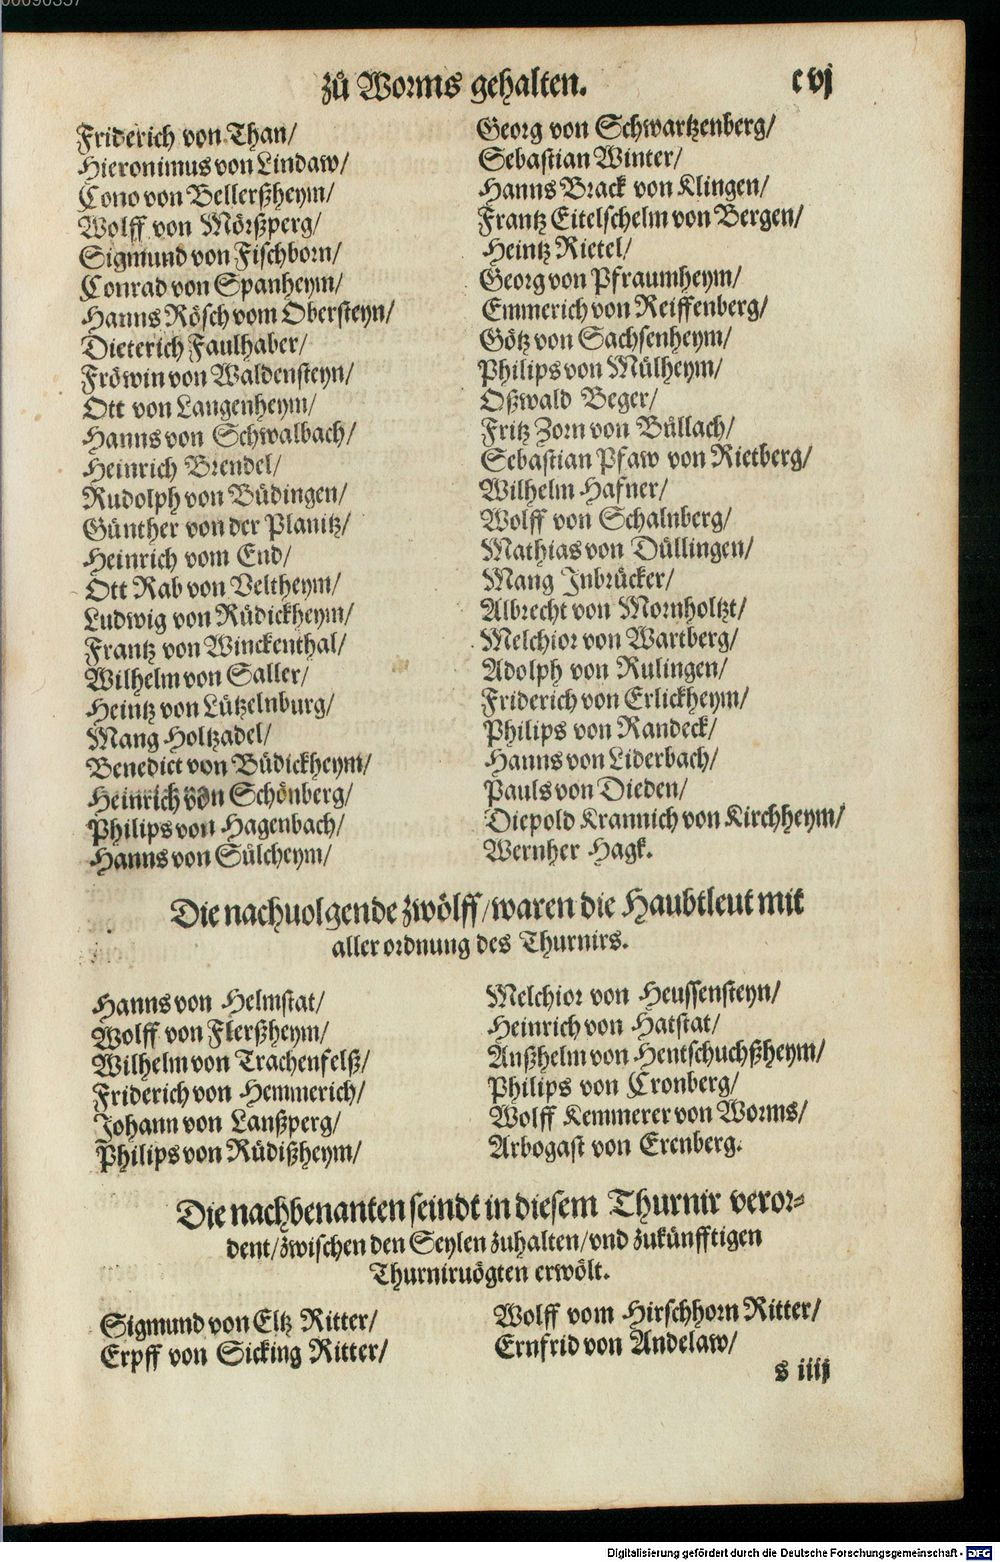 00090357
zů Worms gehalten.
cvj
Friderich von Than/
Hieronimus von Lindaw/
Cono von Bellerßheym/
Wolff von Mörßperg/
Sigmund von Fischborn/
Conrad von Spanheym/
Hanns Rösch vom Obersteyn/
Dieterich Faulhaber/
Fröwin von Waldensteyn/
Ott von Langenheym/
Hanns von Schwalbach/
Heinrich Brendel/
Rudolph von Büdingen/
Günther von der Planitz/
Heinrich vom End/
Ott Rab von Veltheym/
Ludwig von Rüdickheym/
Frantz von Winckenthal/
Wilhelm von Saller/
Heintz von Lützelnburg/
Mang Holtzadel/
Benedict von Büdickheym/
Heinrich von Schönberg/
Philips von Hagenbach/
Hanns von Sülcheym/
Georg von Schwartzenberg/
Sebastian Winter/
Hanns Brack von Klingen/
Frantz Eitelschelm von Bergen/
Heintz Rietel/
Georg von Pfraumheym/
Emmerich von Reiffenberg/
Götz von Sachsenheym/
Philips von Mülheym/
Oßwald Beger/
Fritz Zorn von Büllach/
Sebastian Pfaw von Rietberg/
Wilhelm Hafner/
Wolff von Schalnberg/
Mathias von Düllingen/
Mang Inbrücker/
Albrecht von Mornholtzt/
Melchior von Wartberg/
Adolph von Rulingen/
Friderich von Erlickheym/
Philips von Randeck/
Hanns von Liderbach/
Pauls von Dieden/
Diepold Krannich von Kirchheym/
Wernher Hagk.
Die nachuolgende zwölff/waren die Haubtleut mit
aller ordnung des Thurnirs.
Hanns von Helmstat/
Wolff von Flerßheym/
Wilhelm von Trachenfelß/
Friderich von Hemmerich/
Johann von Lanßperg/
Philips von Rüdißheym/
Melchior von Heussensteyn/
Heinrich von Hatstat/
Anßhelm von Hentschuchßheym/
Philips von Cronberg/
Wolff Kemmerer von Worms/
Arbogast von Erenberg.
Die nachbenanten seindt in diesem Thurnir veror-
dent/zwischen den Seylen zuhalten/vnd zukünfftigen
Thurniruögten erwölt.
Sigmund von Eltz Ritter/
Erpff von Sicking Ritter/
Wolff vom Hirschhorn Ritter/
Ernfrid von Andelaw/
s iiij
Digitalisierung gefördert durch die Deutsche Forschungsgemeinschaft - DFG